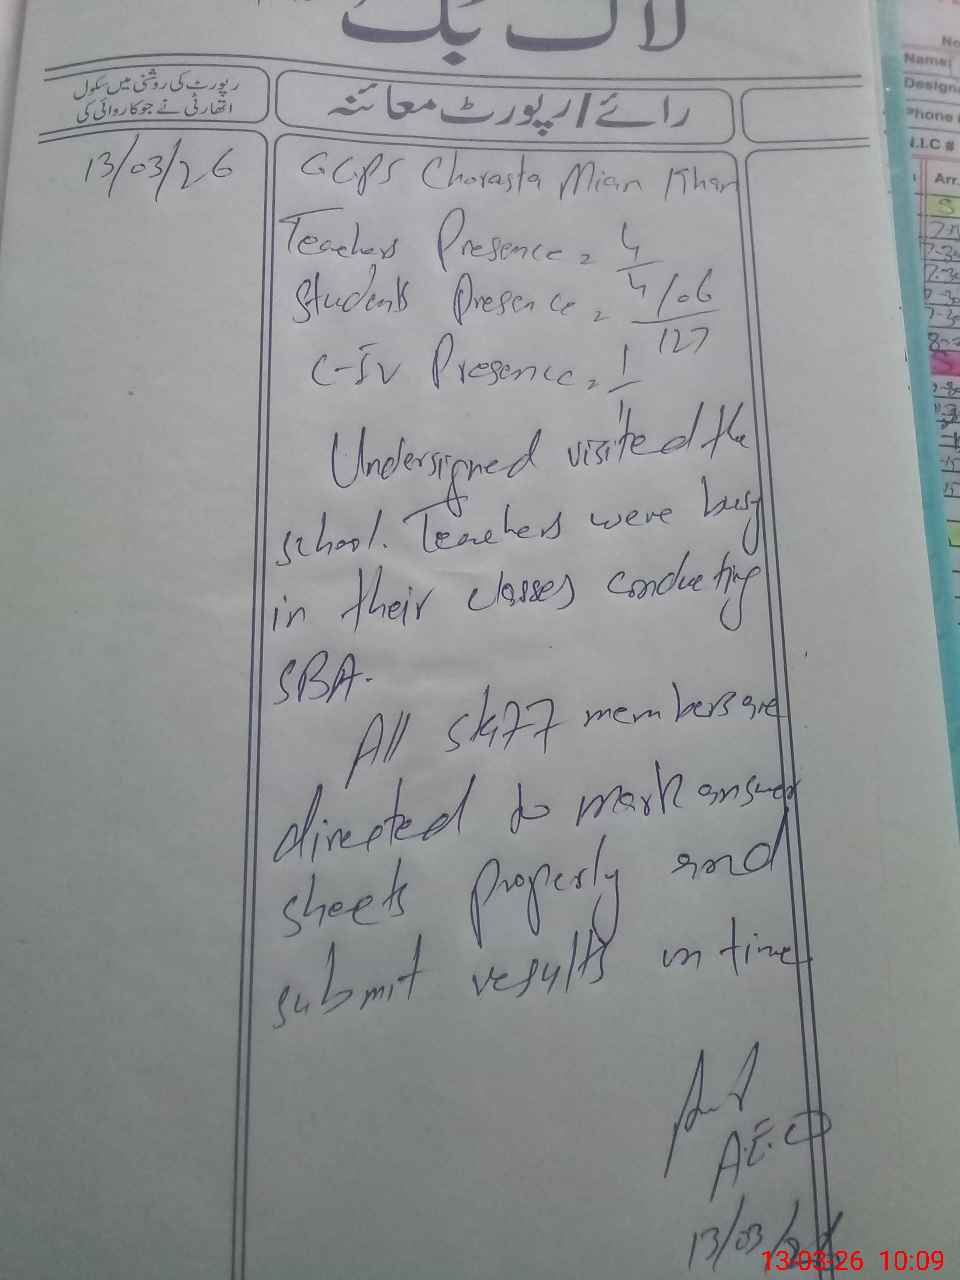 لاگ بک
رپورٹ کی روشنی میں سکول
اتھارٹی نے جو کاروائی کی
رائے / رپورٹ معائنہ
13/03/26
GGPS Chorasta Mian Khan
Teachers Presence = 4/4
Students Presence = 106/127
C-IV Presence = 1/1
Undersigned visited the
school. Teachers were busy
in their classes conducting
SBA.
All staff members are
directed to mark answer
sheets properly and
submit results in time
A.E.O
13/03/26
No
Name:
Design
Phone
N.I.C #
Arr.
13-03-26 10:09